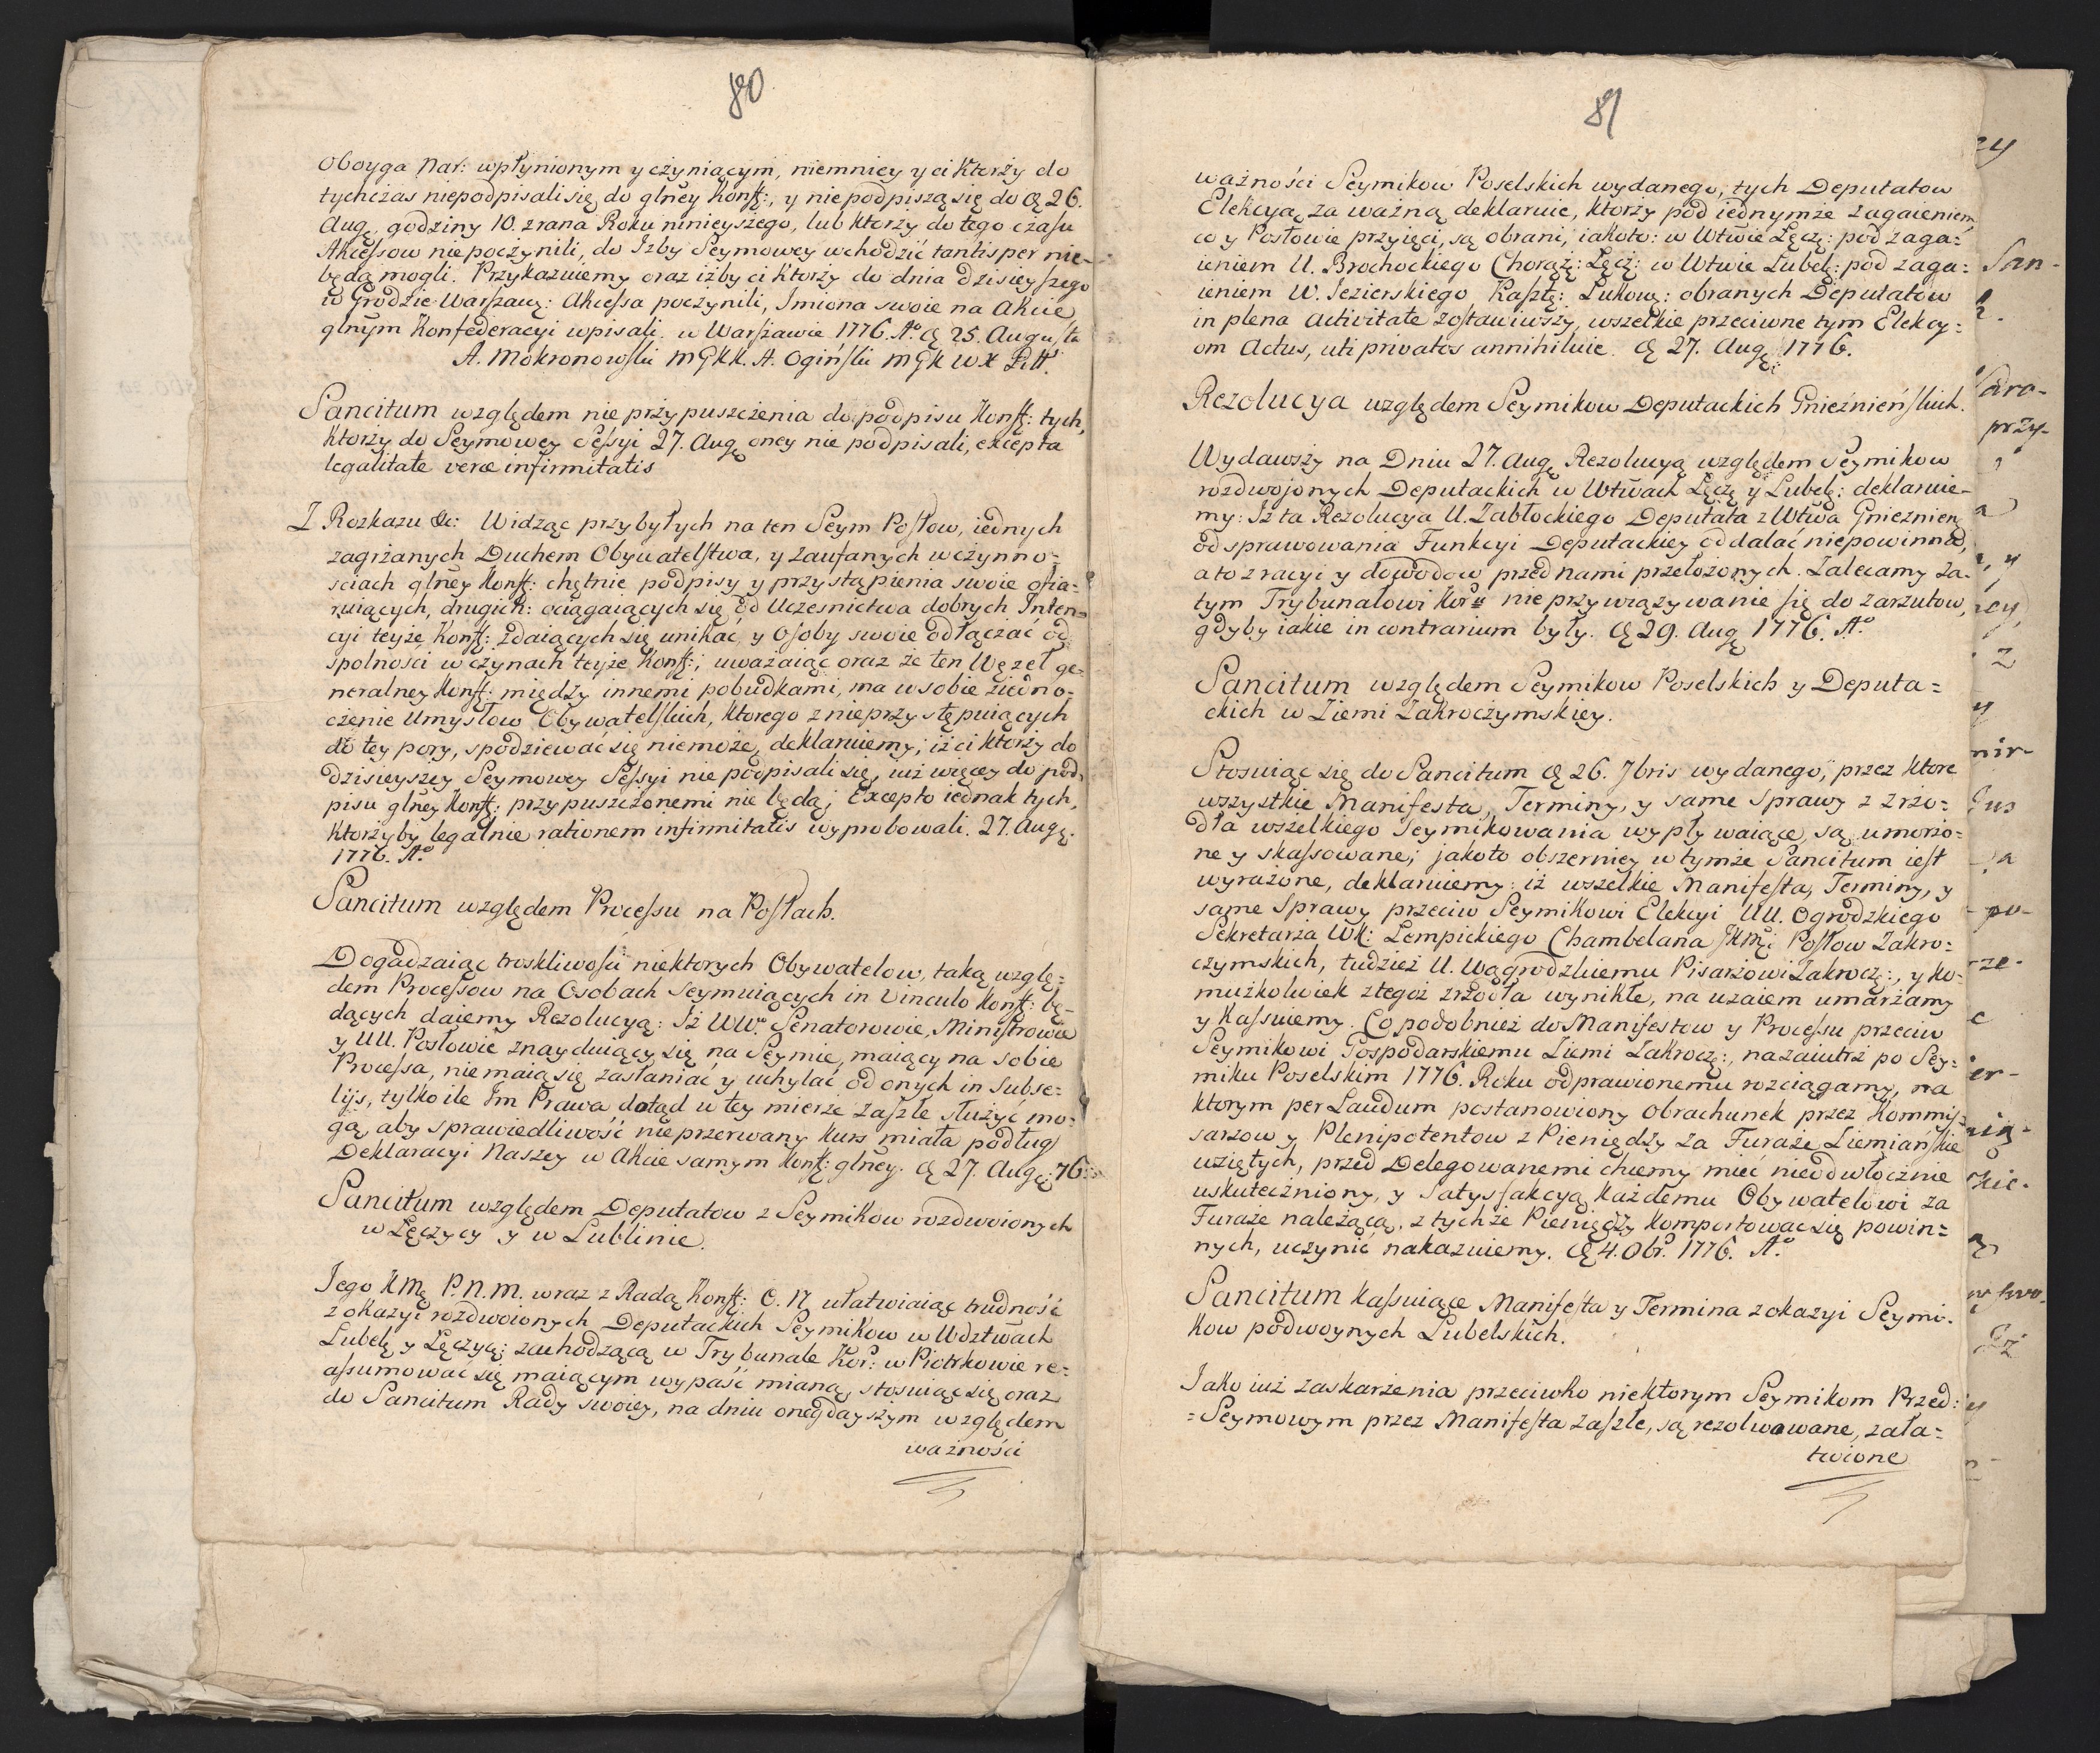 80
oboyga Nar: wpłynionym y czyniącym, niemniey y ci Ktorży do
tychczas niepodpisali się do glney Konf:, y nie podpiszą się do d 26.
Aug. godziny 10. zrana Roku ninieyszego, lub Ktorży do tego czasu
Akcessow niepoczynili, do Izby Seymowey wchodzić tantisper nie-
będą mogli. Przykazuiemy oraz iżby ci Ktorży do dnia dzisieyszego
w Grodzie Warszaw: Akcessa poczynili, Imiona swoie na Akcie
glnym Konfederacyi wpisali. w Warszawie 1776. Ao d 25. Augusta
A. Mokronowski MGKK. A. Ogiński MGK WX Litt.
Sancitum względem nie przypuszczenia do podpisu Konf: tych,
Ktorży do Seymowey Sessyi 27. Aug oney nie podpisali, excepta
legalitate verae infirmitatis
Z Rozkazu &c: Widząc przybyłych na ten Seym Posłow, iednych
zagrżanych Duchem Obywatelstwa, y zaufanych w czynno-
ściach glney Konf: chętnie podpisy y przystąpienia swoie ofia-
ruiących, drugich: ociągaiących się od Uczesnictwa dobrych Inten-
cyi teyże Konf: zdaiących się unikać y Osoby swoie odłączać od
spolności w czynach teyże Konf:; uważaiąc oraz że ten Węzeł ge-
neralney Konf: między innemi pobudkami, ma w sobie ziedno-
czenie Umysłow Obywatelskich, Ktorego z nieprzystępuiących
do tey pory, spodziewać się niemoże, deklaruiemy; iż ci Ktorży do
dzisieyszey Seymowey Sessyi nie podpisali się, iuż więcey do pod-
pisu glney Konf: przypuszczonemi nie będą; Excepto iednak tych,
Ktorżyby legalnie rationem infirmitatis wyprobowali. 27. Aug.
1776. Ao
Sancitum względem Processu na Posłach.
Dogadzaiąc troskliwości niektorych Obywatelow, taką wzglę-
dem Processow na Osobach Seymuiących in vinculo Konf: bę-
dących daiemy Rezolucyą: Iż WW. Senatorowie, Ministrowie
y UU. Posłowie znayduiący się na Seymie, maiący na sobie
Processa, nie maią się zasłaniać y uchylać od onych in Subse-
lijs, tylko ile Im Prawa dotąd w tey mierze zaszłe służyć mo-
gą, aby sprawiedliwość nieprzerwany Kurs miała podług
Deklaracyi Naszey w Akcie samym Konf: glney. d 27. Aug: 76.
Sancitum względem Deputatow z Seymikow rozdwoionych
w Łęczycy y w Lublinie.
Jego KMę P.N.M. wraz z Radą Konf: O. N. ułatwiaiąc trudność
z okazyi rozdwoionych Deputackich Seymikow w Wdztwach
Lubel: y Łęczyc: zachodzącą w Trybunale Kor: w Piotrkowie re-
assumować się maiącym wypaść mianą, stosuiąc się oraz
do Sancitum Rady swoiey, na dniu onegdayszym względem
ważności
81
ważności Seymikow Poselskich wydanego, tych Deputatow
Elekcyą za ważną deklaruie, Ktorży pod iednymże zagaieniem
co y Posłowie przyięci, są obrani, iakoto: w Wtwie Łęcz: pod zaga-
ieniem U. Brochockiego Chorąż: Łęcz: w Wtwie Lubel: pod zaga-
ieniem W. Jezierskiego Kaszt: Łukow: obranych Deputatow
in plena activitate zostawiwszy, wszelkie przeciwne tym Elekcy-
om Actus, uti privatos annihiluie. d 27. Aug: 1776.
Rezolucya względem Seymikow Deputackich Gnieźnieńskich.
Wydawszy na Dniu 27. Aug. Rezolucyą względem Seymikow
rozdwojonych Deputackich w Wtwach Łęcz: y Lubel: deklaruie-
my: Iż ta Rezolucya U. Zabłockiego Deputata z Wtwa Gnieznien:
od sprawowania Funkcyi Deputackiey oddalać niepowinna,
a to z racyi y dowodow przed nami przełożonych. Zalecamy za-
tym Trybunałowi Kor: nie przywiązywanie się do zarzutow,
gdyby iakie in contrarium były. d 29. Aug 1776. Ao
Sancitum względem Seymikow Poselskich y Deputa=
ckich w Ziemi Zakroczymskiey.
Stosuiąc się do Sancitum d 26. 7bris wydanego, przez Ktore
wszystkie Manifesta, Terminy, y same Sprawy z zrżo-
dła wszelkiego Seymikowania wypływaiące, są umorżo-
ne y skassowane; jakoto obszerniey w tymże Sancitum iest
wyrażone, deklaruiemy: iż wszelkie Manifesta, Terminy, y
same Sprawy przeciw Seymikowi Elekcyi UU. Ogrodzkiego
Sekretarża WK: Lempickiego Chambelana JKMci Posłow Zakro-
czymskich, tudzież U. Wągrodzkiemu Pisarżowi Zakrocz:, y Ko-
mużkolwiek z tegoż zrżodła wynikłe, na uzaiem umarżamy
y Kassuiemy. Co podobnież do Manifestow y Processu przeciw
Seymikowi Gospodarskiemu Ziemi Zakrocz:, nazaiutrz po Sey-
miku Poselskim 1776. Roku odprawionemu rozciągamy, na
ktorym per Laudum postanowiony Obrachunek przez Kommis-
sarzow y Plenipotentow z Pieniędzy za Furaże Ziemiańskie
wziętych, przed Delegowanemi chcemy mieć nieodwłocznie
uskuteczniony, y satysfakcyą Każdemu Obywatelowi za
Furaże należącą, z tychże Pieniędzy Komportować się powin=
nych, uczynić nakazuiemy. d 4. 8br. 1776. Ao
Sancitum Kassuiące Manifesta y Termina z okazyi Seymi-
kow podwoynych Lubelskich.
Jako iuż zaskarżenia przeciwko niektorym Seymikom Przed=
=Seymowym przez Manifesta zaszłe, są rezolwowane, zała=
twione